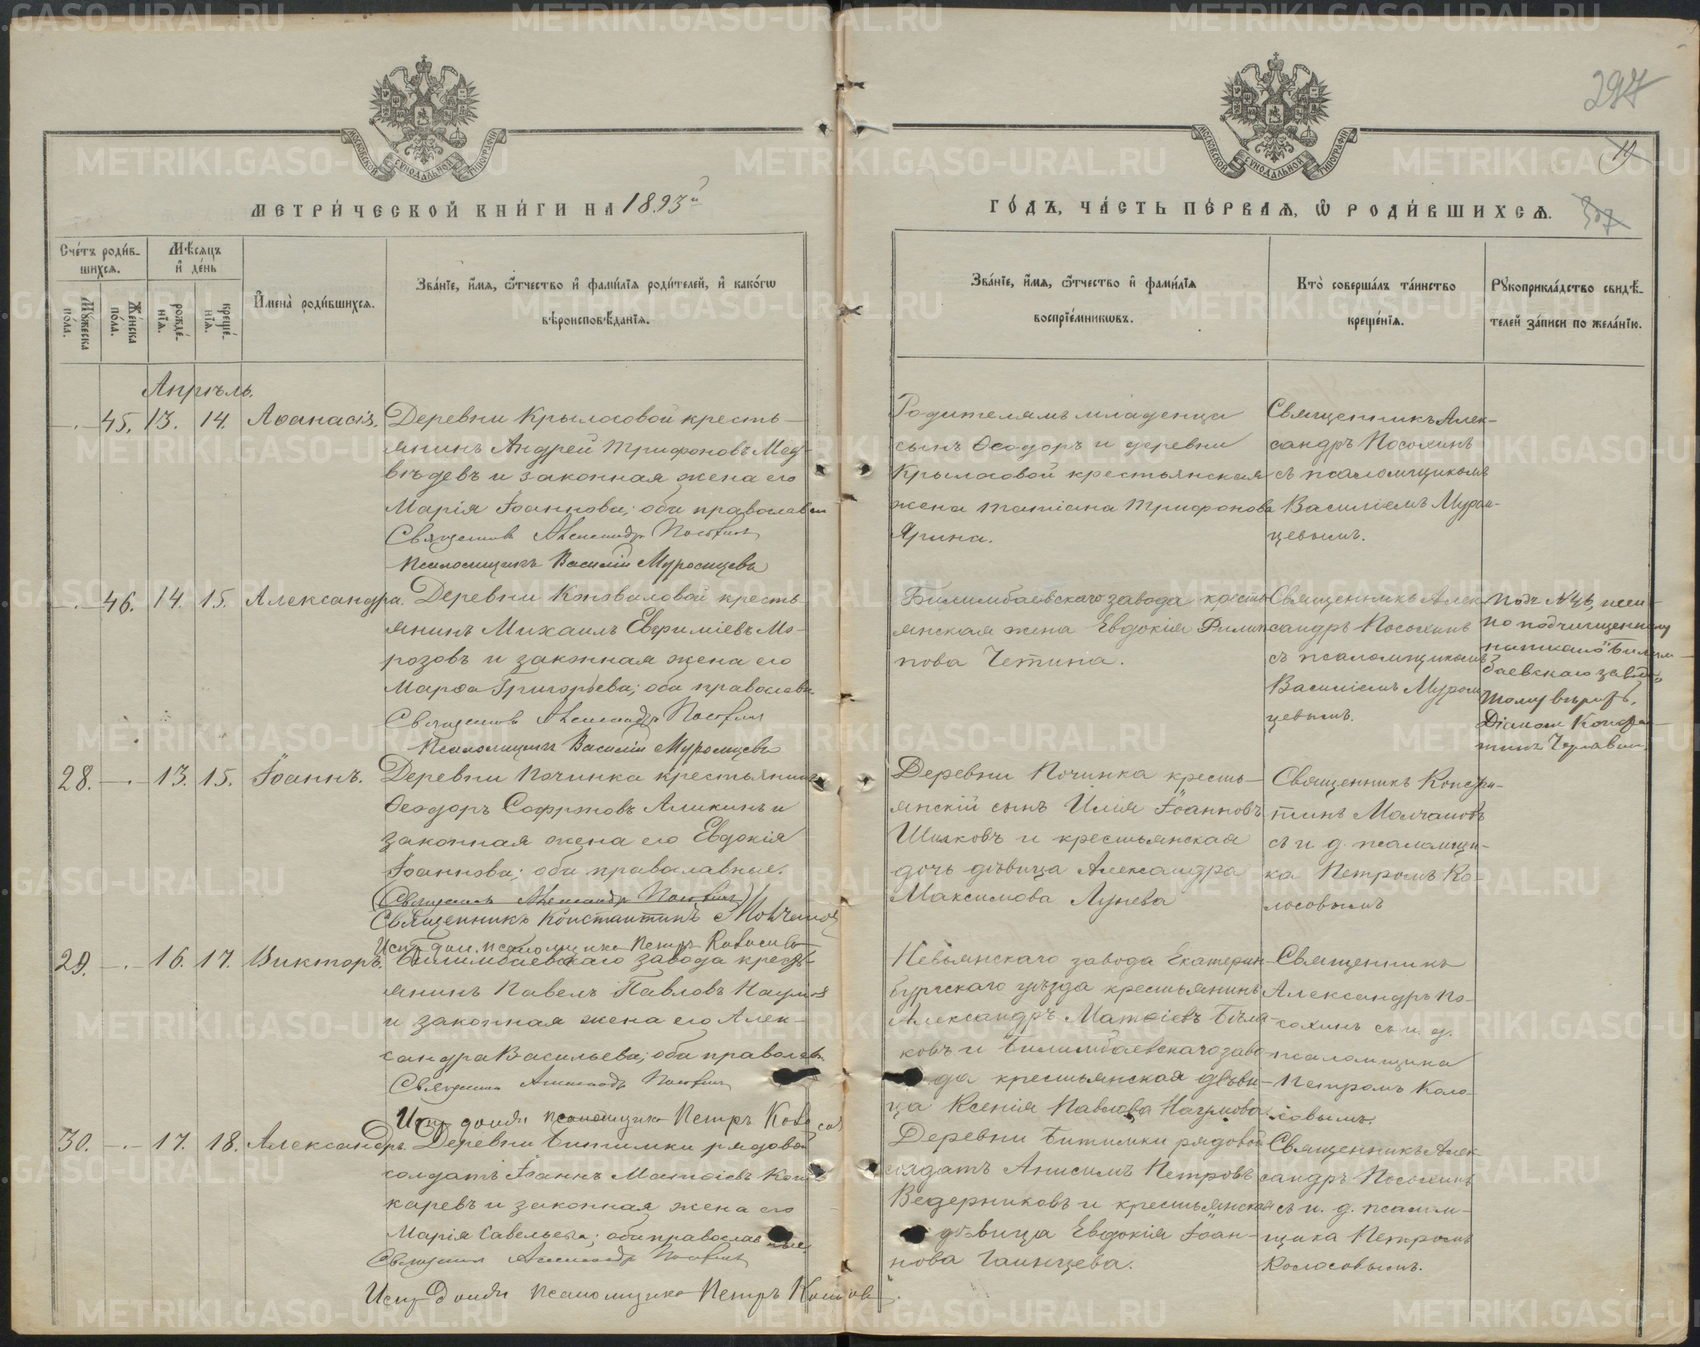 297
19
307
МЕТРИ́ЧЕСКОЙ КНИ́ГИ НА 1893й
ГО́ДЪ, ЧА́СТЬ ПЕ́РВАЯ, Ѽ РОДИ́ВШИХСЯ.
Сче́тъ роди́в-
шихся.
Мѣ́сяцъ
и҆ де́нь
Мꙋ́жеска по́ла.
Же́нска по́ла.
рожде́-
нїя.
креще́-
нїя.
И҆мена̀ роди́вшихся.
Зва́нїе, и҆́мя, ѻ҆́тчество и҆ фами́лїя роди́телей, и҆ како́гѡ
вѣроисповѣ́данїя.
Зва́нїе, и҆́мя, ѻ҆́тчество и҆ фами́лїя
воспрїе́мникѡвъ.
Кто̀ соверша́лъ та́инство
креще́нїя.
Рꙋкоприкла́дство свидѣ́-
телей за́писи по жела́нїю.
Апрѣль.
—. 45. 13. 14. Аѳанасія. Деревни Крыласовой кресть-
янинъ Андрей Трифоновъ Мед-
вѣдевъ и законная жена его
Марія Іоаннова; оба православн
Священникъ Александръ Посохинъ
Псаломщикъ Василій Муромцевъ
Родителямъ младенца
сынъ Ѳеодоръ и деревни
Крыласовой крестьянская
жена Татіана Трифонова
Ярина.
Священникъ Алек-
сандръ Посохинъ
съ псаломщикомъ
Василіемъ Муром-
цевымъ.
—. 46. 14. 15. Александра. Деревни Коноваловой кресть
янинъ Михаилъ Евфиміевъ Мо-
розовъ и законная жена его
Марѳа Григорьева; оба православн
Священникъ Александръ Посохинъ
Псаломщикъ Василій Муромцевъ
Билимбаевскаго завода кресть
янская жена Евдокія Филип
пова Четина.
Священникъ Алек
сандръ Посохинъ
съ псаломщикомъ
Василіемъ Муром
цевымъ.
Подъ № 46,
по подчищенному
написано "Билим-
баевскаго завода"
тому вѣрить.
Діаконъ
28. —. 13. 15. Іоаннъ. Деревни Починка крестьянинъ
Ѳеодоръ Софроновъ Аликинъ и
законная жена его Евдокія
Іоаннова; оба православные.
(Священникъ Александръ Посохинъ)
Священникъ Константинъ Молчановъ
Исп. долж. псаломщика Петръ Колосовъ
Деревни Починка кресть-
янскій сынъ Илія Іоанновъ
Шилковъ и крестьянская
дочь дѣвица Александра
Максимова Лунева
Священникъ Констан-
тинъ Молчановъ
съ и. д. псаломщи-
ка Петромъ Ко-
лосовымъ
29. —. 16. 17. Викторъ. Билимбаевскаго завода кресть-
янинъ Павелъ Павловъ Наумовъ
и законная жена его Алек-
сандра Васильева; оба православн
Священникъ Александръ Посохинъ
Исп. долж. псаломщика Петръ Колосовъ
Невьянскаго завода Екатерин-
бургскаго уѣзда крестьянинъ
Александръ Матѳіевъ Бѣля-
ковъ и Билимбаевскаго заво-
да крестьянская дѣви-
ца Ксенія Павлова Наумова
Священникъ
Александръ По-
сохинъ съ и. д.
псаломщика
Петромъ Коло-
совымъ.
30. —. 17. 18. Александръ. Деревни Битимки рядовой
солдатъ Іоаннъ Матѳіевъ Кош-
каревъ и законная жена его
Марія Савельева; оба православные.
Священникъ Александръ Посохинъ
Исп. долж. псаломщика Петръ Колосовъ.
Деревни Битимки рядовой
солдатъ Анисимъ Петровъ
Ведерниковъ и крестьянская
дѣвица Евдокія Іоан-
нова Гаинцева.
Священникъ Алек
сандръ Посохинъ
съ и. д. псалом-
щика Петромъ
Колосовымъ.